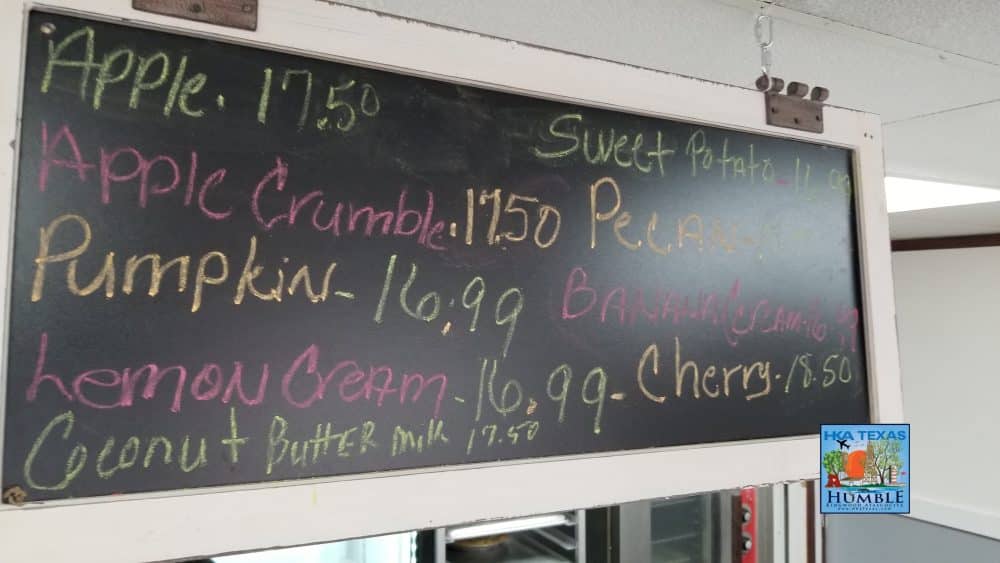 Apple. 17.50
Sweet Potato
Apple Crumble. 17.50
PECAN-
Pumpkin- 16.99
BANANA CREAM-16.99
Lemon Cream - 16.99-
Cherry. 18.50
Coconut BuTTER milk 17.50
HKA TEXAS
HUMBLE